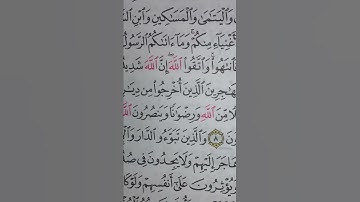 وَٱلْيَتَٰمَىٰ وَٱلْمَسَٰكِينِ وَٱبْنِ
أَغْنِيَآءِ مِنكُمْ ۚ وَمَآ ءَاتَىٰكُمُ ٱلرَّسُولُ
فَٱنتَهُوا۟ ۚ وَٱتَّقُوا۟ ٱللَّهَ ۖ إِنَّ ٱللَّهَ شَدِيدُ
ٱلَّذِينَ أُخْرِجُوا۟ مِن
مِّنَ ٱللَّهِ وَرِضْوَٰنًا وَيَنصُرُونَ ٱللَّهَ
٨ وَٱلَّذِينَ تَبَوَّءُو ٱلدَّارَ
هَاجَرَ إِلَيْهِمْ وَلَا يَجِدُونَ فِى
وَيُؤْثِرُونَ عَلَىٰٓ أَنفُسِهِمْ وَلَوْ